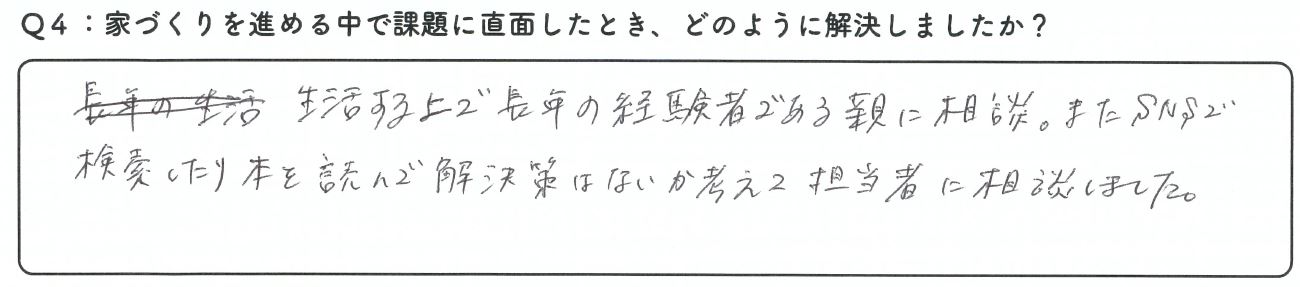 Q4：家づくりを進める中で課題に直面したとき、どのように解決しましたか？
長年の生活 生活する上で長年の経験者である親に相談。またSNSで
検索したり本を読んで解決策はないか考えて担当者に相談しました。